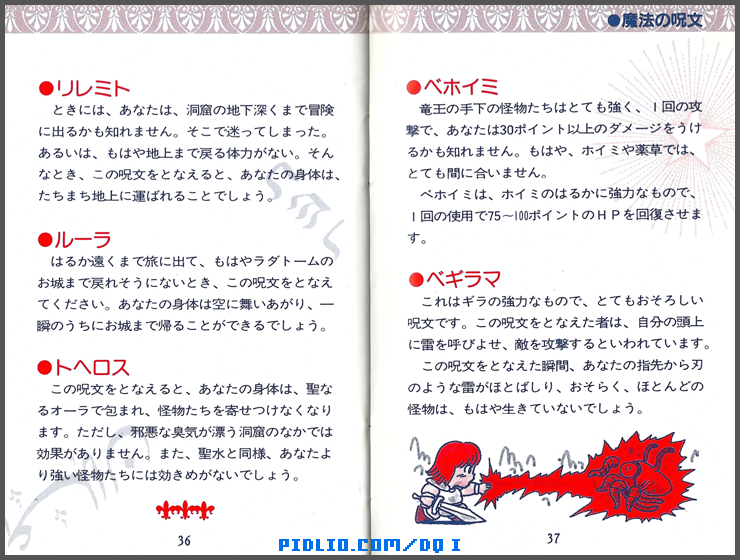 ●リレミト
ときには、あなたは、洞窟の地下深くまで冒険
に出るかも知れません。そこで迷ってしまった。
あるいは、もはや地上まで戻る体力がない。そん
なとき、この呪文をとなえると、あなたの身体は、
たちまち地上に運ばれることでしょう。
●ルーラ
はるか遠くまで旅に出て、もはやラダトームの
お城まで戻れそうにないとき、この呪文をとなえ
てください。あなたの身体は空に舞いあがり、一
瞬のうちにお城まで帰ることができるでしょう。
●トヘロス
この呪文をとなえると、あなたの身体は、聖な
るオーラで包まれ、怪物たちを寄せつけなくなり
ます。ただし、邪悪な臭気が漂う洞窟のなかでは
効果がありません。また、聖水と同様、あなたよ
り強い怪物たちには効きめがないでしょう。
36
●魔法の呪文
●ベホイミ
竜王の手下の怪物たちはとても強く、1回の攻
撃で、あなたは30ポイント以上のダメージをうけ
るかも知れません。もはや、ホイミや薬草では、
とても間に合いません。
ベホイミは、ホイミのはるかに強力なもので、
1回の使用で75〜100ポイントのHPを回復させま
す。
●ベギラマ
これはギラの強力なもので、とてもおそろしい
呪文です。この呪文をとなえた者は、自分の頭上
に雷を呼びよせ、敵を攻撃するといわれています。
この呪文をとなえた瞬間、あなたの指先から刃
のような雷がほとばしり、おそらく、ほとんどの
怪物は、もはや生きていないでしょう。
37
PIDLIO.COM/DQ I